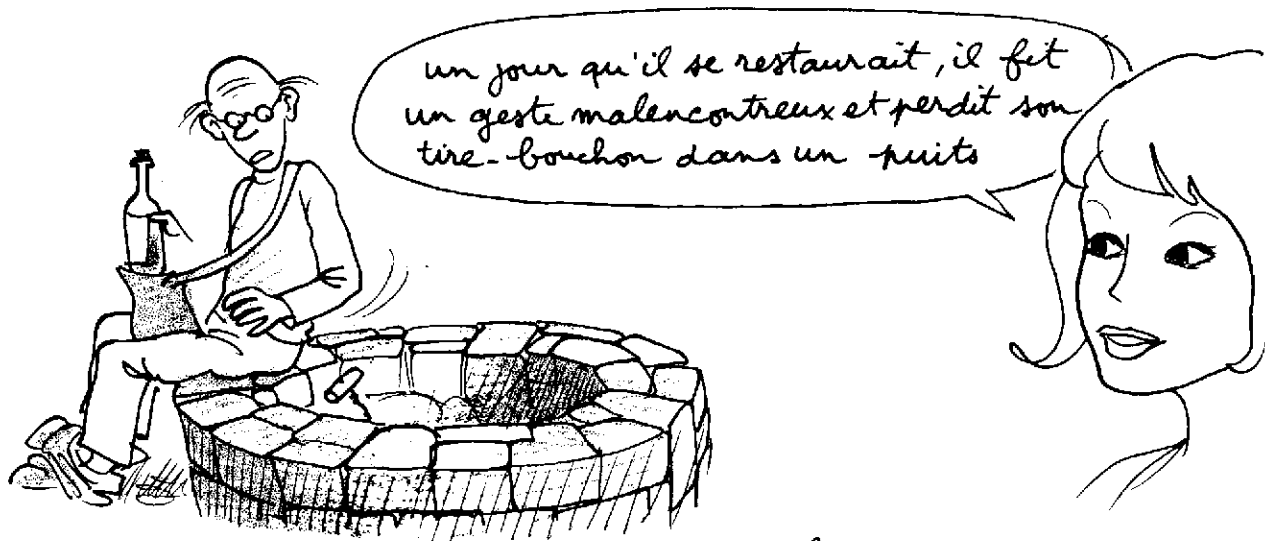 un jour qu'il se restaurait, il fit
un geste malencontreux et perdit son
tire-bouchon dans un puits